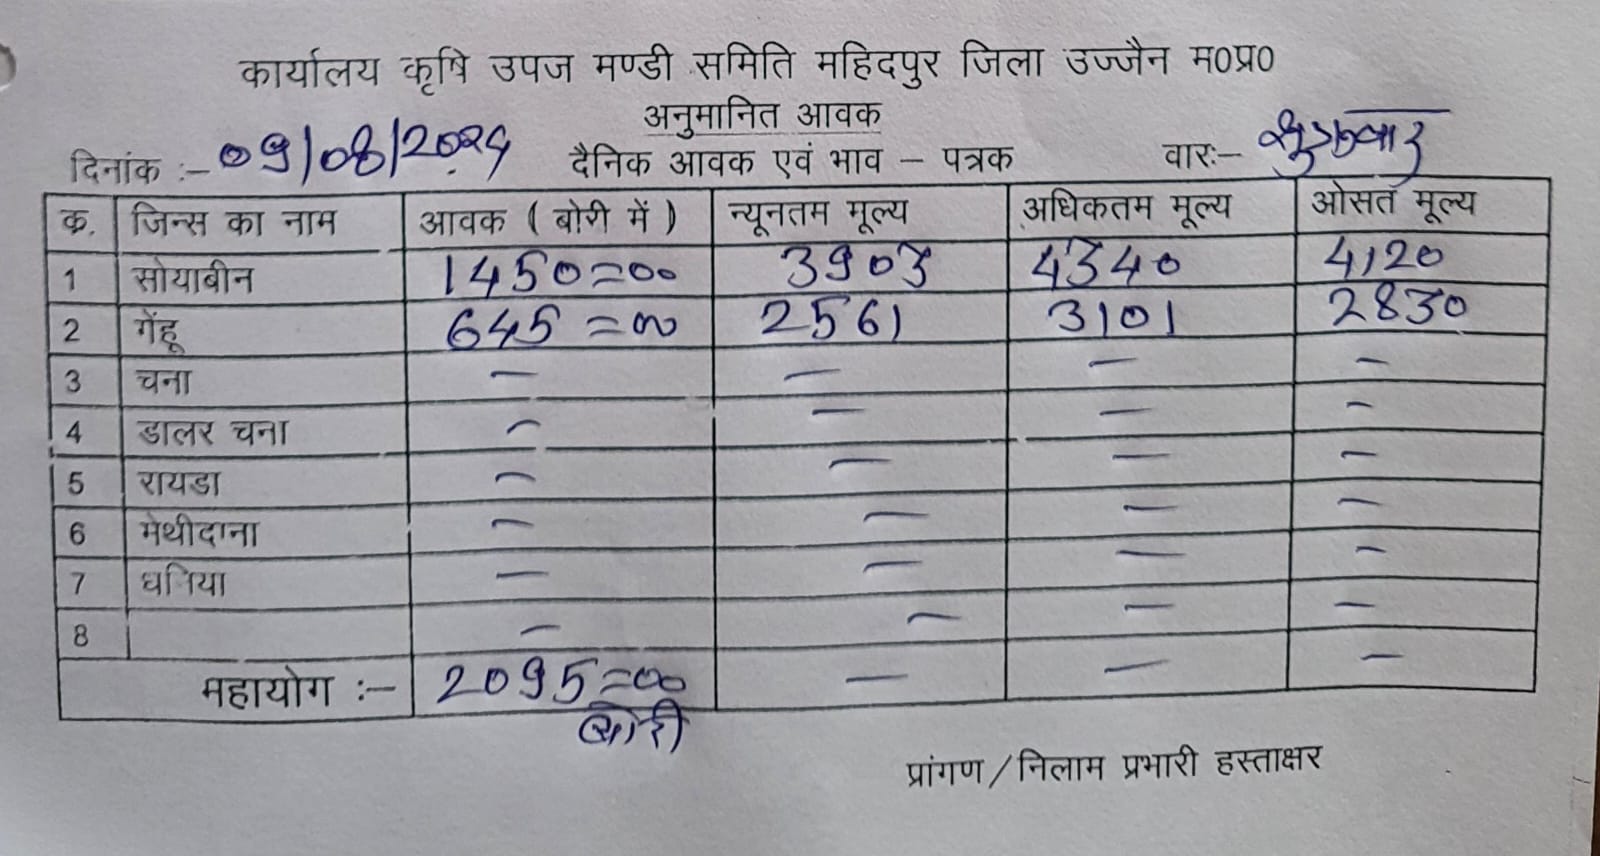 कार्यालय कृषि उपज मण्डी समिति महिदपुर जिला उज्जैन म0प्र0
अनुमानित आवक
दिनांक :– 09/08/2024 दैनिक आवक एवं भाव – पत्रक वारः– शुक्रवार
क्र. जिन्स का नाम आवक ( बोरी में ) न्यूनतम मूल्य अधिकतम मूल्य ओसत मूल्य
1 सोयाबीन 1450=00 3903 4340 4120
2 गेंहू 645=00 2561 3101 2830
3 चना – – – –
4 डालर चना – – – –
5 रायडा – – – –
6 मेथीदाना – – – –
7 धनिया – – – –
8 – – – –
महायोग :– 2095=00 – – –
बोरी
प्रांगण / निलाम प्रभारी हस्ताक्षर